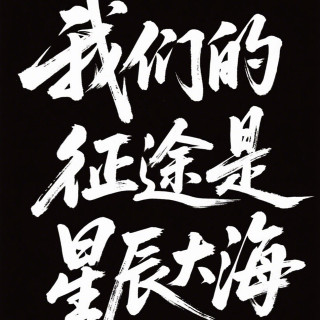 我们的
征途是
星辰大海